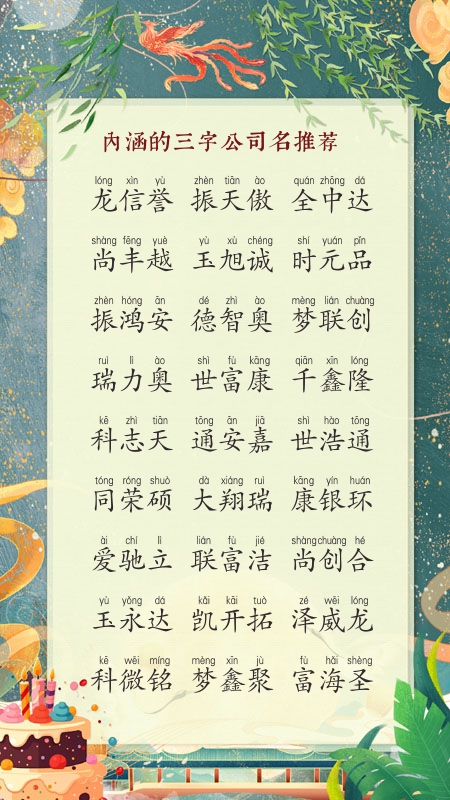 内涵的三字公司名推荐
lóng xìn yù zhèn tiān ào quán zhōng dá
龙信誉 振天傲 全中达
shàng fēng yuè yù xù chéng shí yuán pǐn
尚丰越 玉旭诚 时元品
zhèn hóng ān dé zhì ào mèng lián chuàng
振鸿安 德智奥 梦联创
ruì lì ào shì fù kāng qiān xīn lóng
瑞力奥 世富康 千鑫隆
kē zhì tiān tōng ān jiā shì hào tōng
科志天 通安嘉 世浩通
tóng róng shuò dà xiáng ruì kāng yín huán
同荣硕 大翔瑞 康银环
ài chí lì lián fù jié shàng chuàng hé
爱驰立 联富洁 尚创合
yù yǒng dá kǎi kāi tuò zé wēi lóng
玉永达 凯开拓 泽威龙
kē wēi míng mèng xīn jù fù hǎi shèng
科微铭 梦鑫聚 富海圣